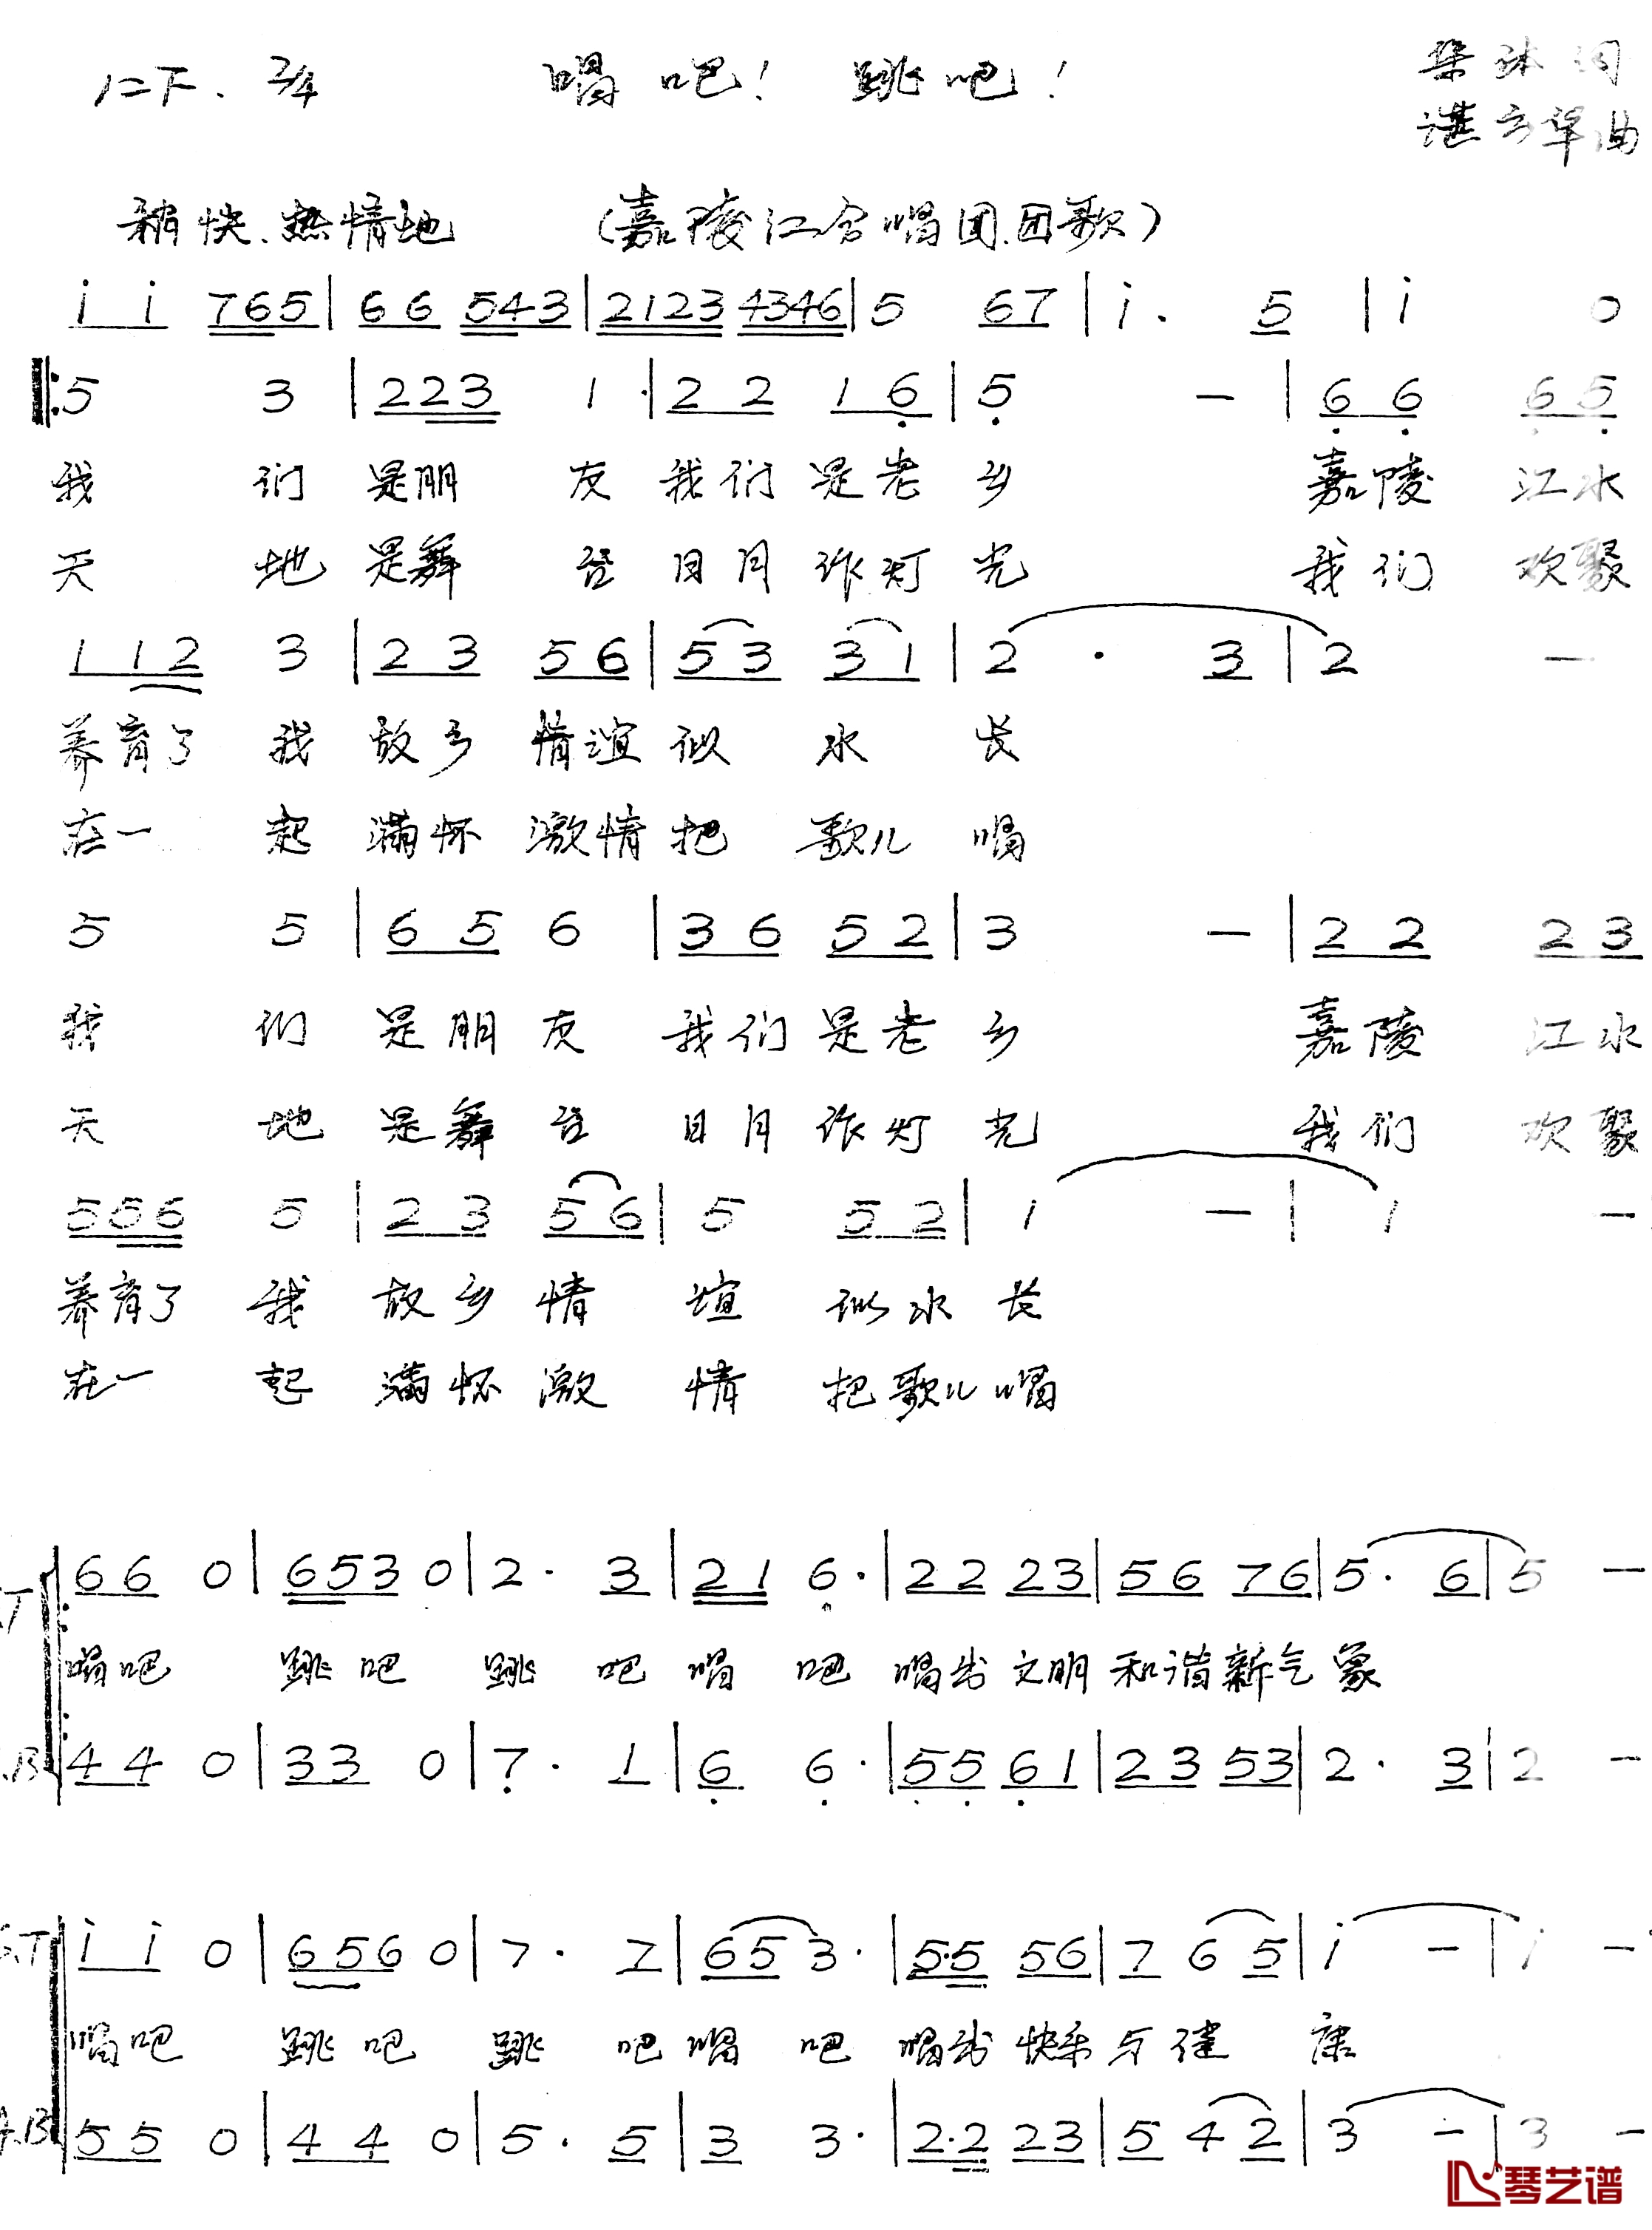 1=F. 2/4 唱吧！跳吧！
词
湛云华曲
稍快、热情地 （嘉陵江合唱团.团歌）
i i 765 | 66 543 | 2123 4346 | 5 67 | i. 5 | i 0
‖: 5 3 | 223 1. | 22 16̣ | 5̣ — | 6̣6̣ 6̣5̣
我 们 是朋 友 我们 是老 乡 嘉陵 江水
天 地 是舞 台 日月 作灯 光 我们 欢聚
112 3 | 23 56 | 53 31 | 2 . 3 | 2 —
养育了 我 故乡 情谊 似 水 长
在一 起 满怀 激情 把 歌儿 唱
5 5 | 65 6 | 36 52 | 3 — | 22 23
我 们 是朋 友 我们 是老 乡 嘉陵 江水
天 地 是舞 台 日月 作灯 光 我们 欢聚
556 5 | 23 56 | 5 52 | 1 — | 1 —
养育了 我 故乡 情 谊 似水 长
在一 起 满怀 激 情 把歌儿 唱
T ‖: 66 0 | 653 0 | 2. 3 | 21 6̣. | 22 23 | 56 76 | 5. 6 | 5 —
唱吧 跳吧 跳 吧 唱 吧 唱出 文明 和谐 新气 象
.B ‖: 44 0 | 33 0 | 7̣. 1 | 6̣ 6̣. | 5̣5̣ 6̣1 | 23 53 | 2. 3 | 2 —
S.T i i 0 | 656 0 | 7. 7 | 65 3. | 5.5 56 | 7 6 5 | i — | i —
唱吧 跳吧 跳 吧 唱 吧 唱出 快乐 与 健 康
A.B 55 0 | 44 0 | 5. 5 | 3 3. | 2.2 23 | 5 4 2 | 3 — | 3 —
琴艺谱